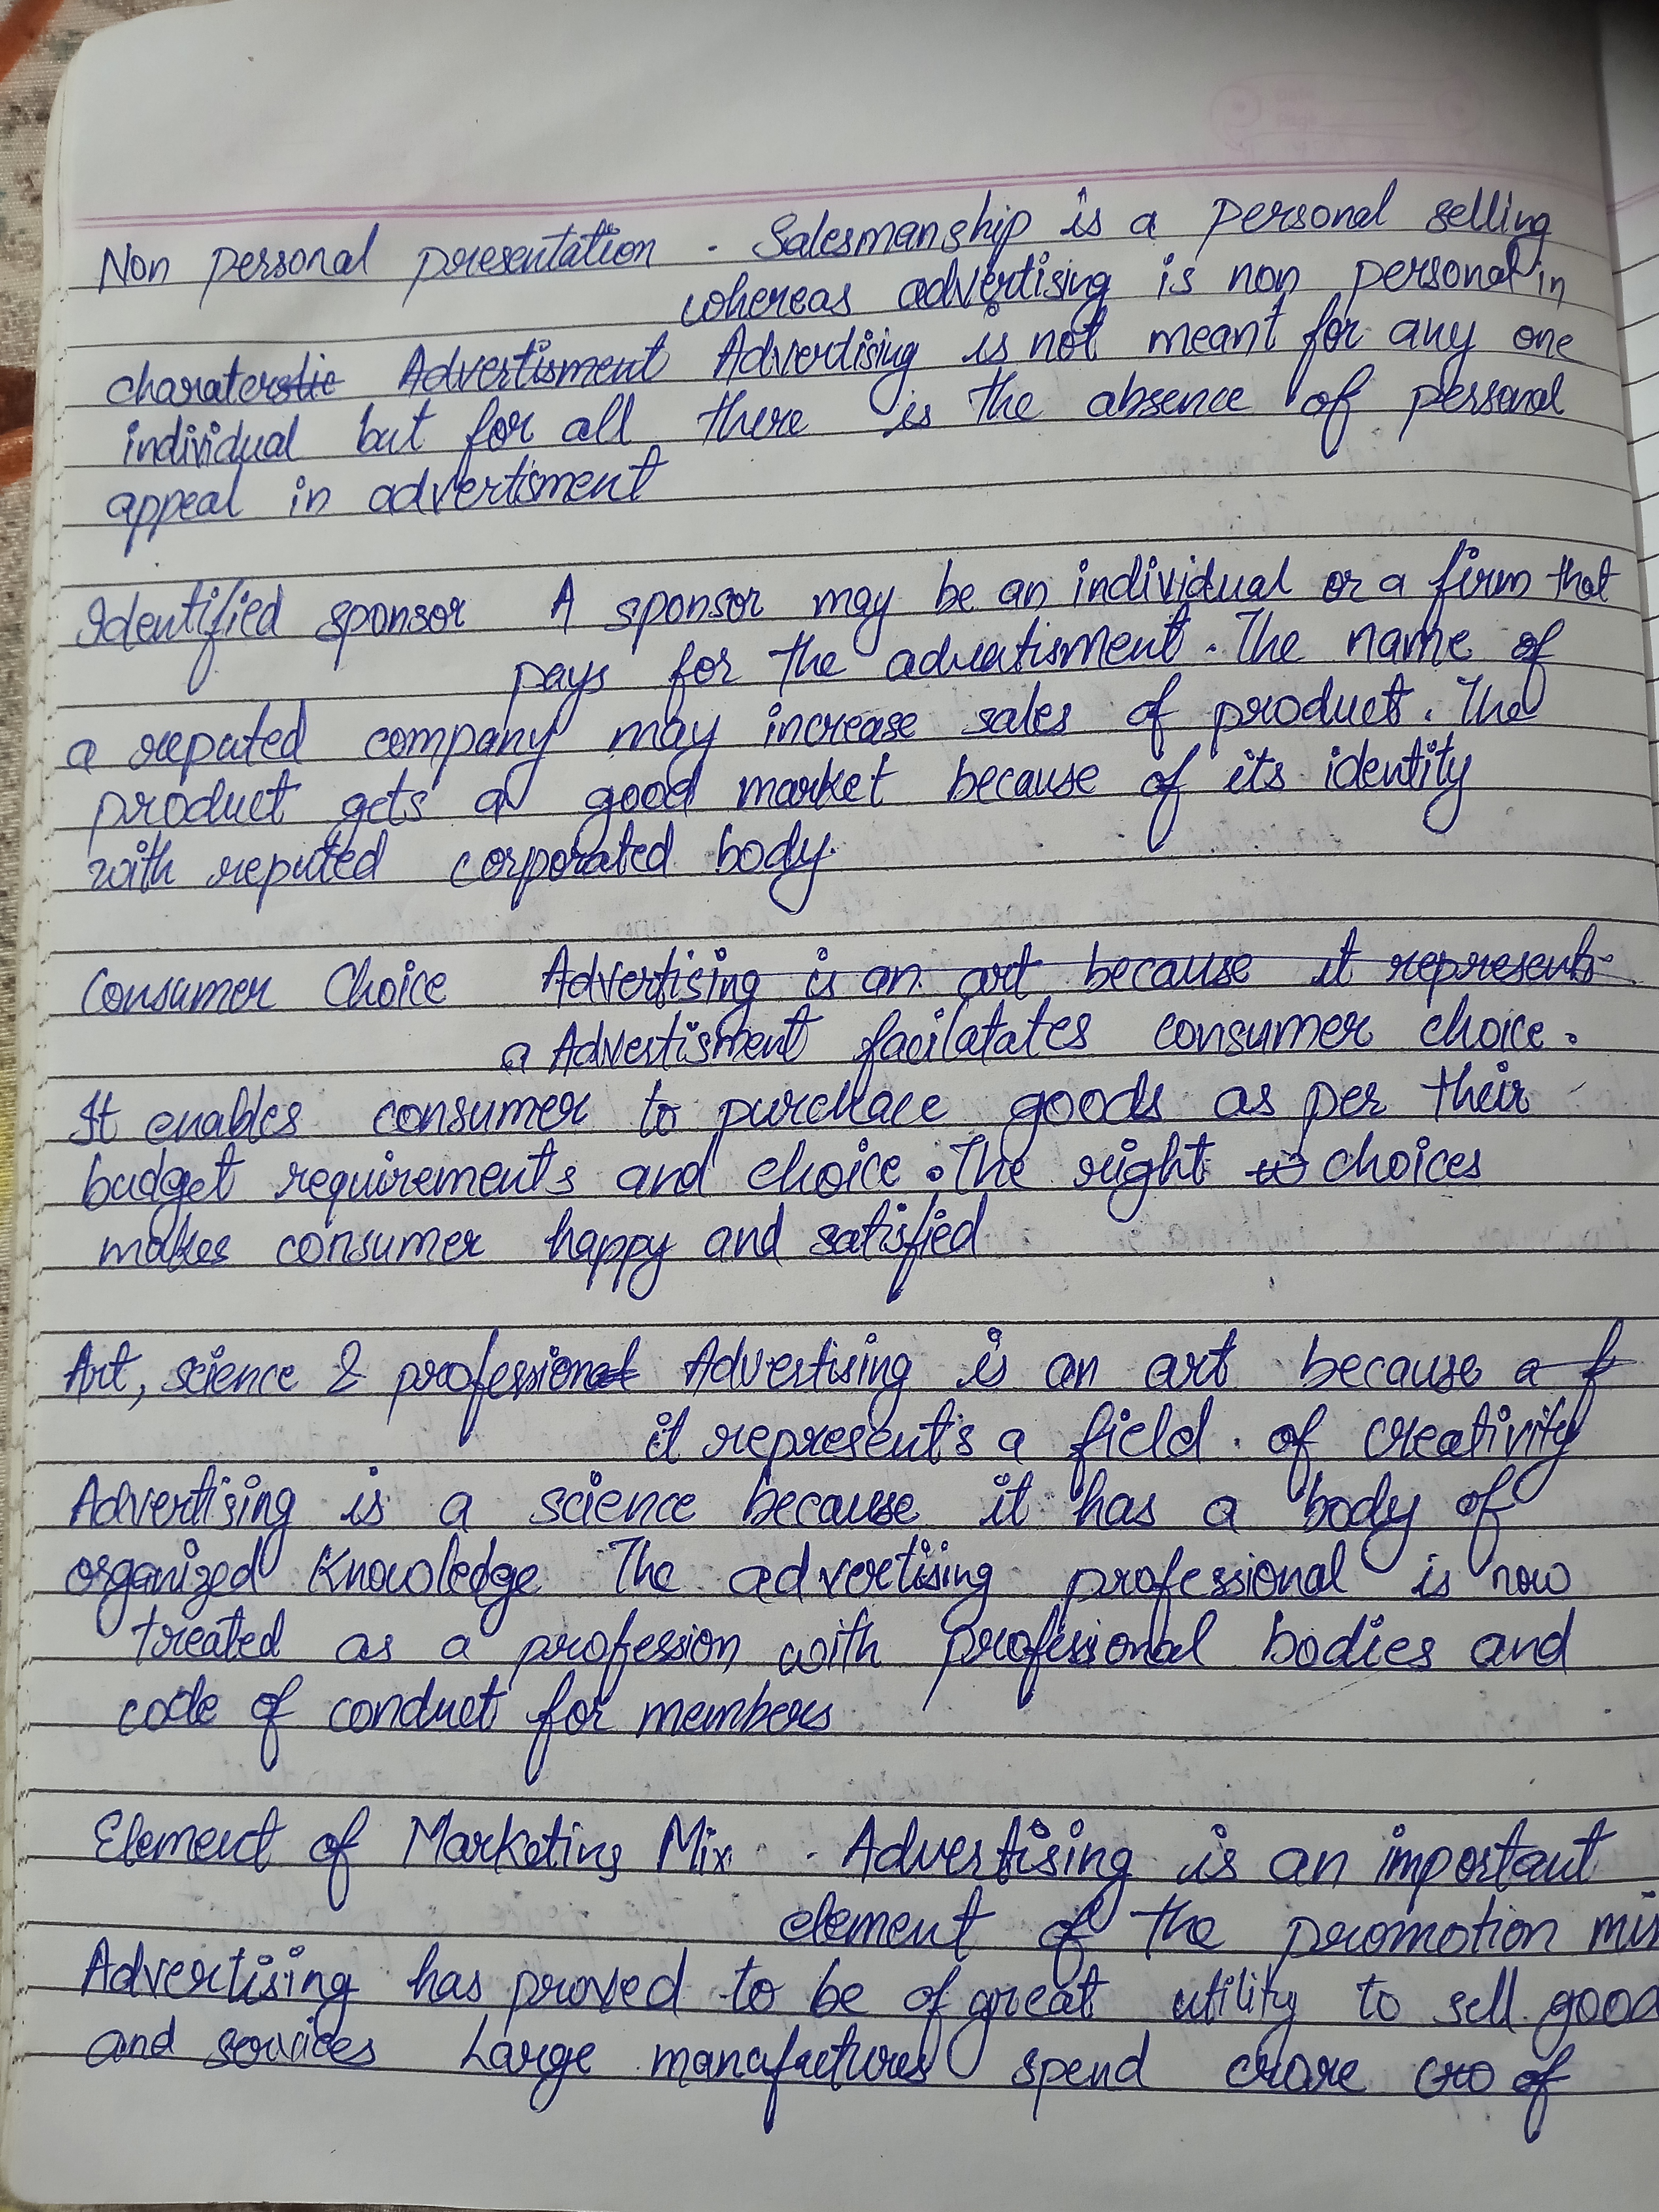 Non personal presentation - Salesmanship is a personal selling
whereas advertising is non personal in
charateristic Advertisment Advertising is not meant for any one
individual but for all there is the absence of personal
appeal in advertisment
Identified sponsor A sponsor may be an individual or a firm that
pays for the advertisment. The name of
a reputed company may increase sales of product. The
product gets a good market because of its identity
with reputed corporated body.
Consumer Choice Advertising is an art because it represents
a Advertisment facilatates consumer choice.
It enables consumer to purchace goods as per their
budget requirements and choice. The right choices
makes consumer happy and satisfied
Art, science & professional Advertising is an art because a f
it represents a field of creativity
Advertising is a science because it has a body of
organized knowledge The advertising professional is now
treated as a profession with professional bodies and
code of conduct for members
Element of Marketing Mix - Advertising is an important
element of the promotion mix
Advertising has proved to be of great utility to sell good
and services Large manufactures spend crore cro of